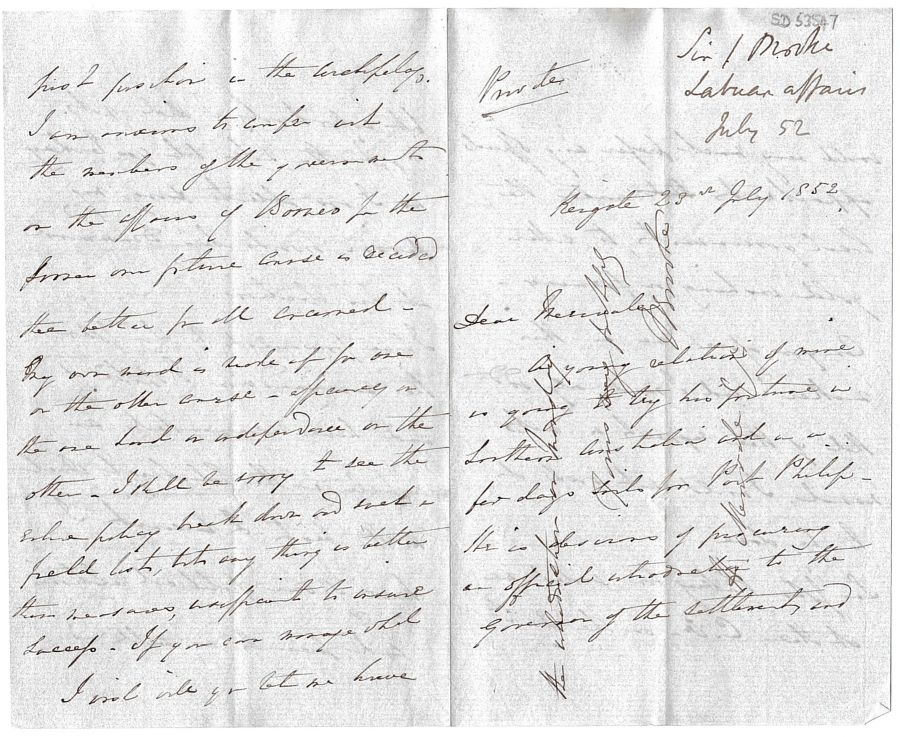 SD 53547
Sir J Brooke
Labuan affairs
July 52
Private
Reigate 23rd July 1852.
Dear Merivale
A young relation of mine
is going to try his fortune in
Southern Australia and in a
few days sails for Port Philip –
He is desirous of procuring
an official introduction to the
Governor of the settlement, and
the introduction
J Brooke
H Merivale
position in the Archipelago.
I am anxious to confer with
the members of the government
on the affairs of Borneo for the
sooner our future course is decided
the better for all concerned –
My own mind is made up for one
or the other course – efficiency on
the one hand or independence on the
other – I shall be sorry to see the
policy break down and such a
field lost, but any thing is better
than measures, insufficient to insure
success – If you can manage what
I wish will you let me have